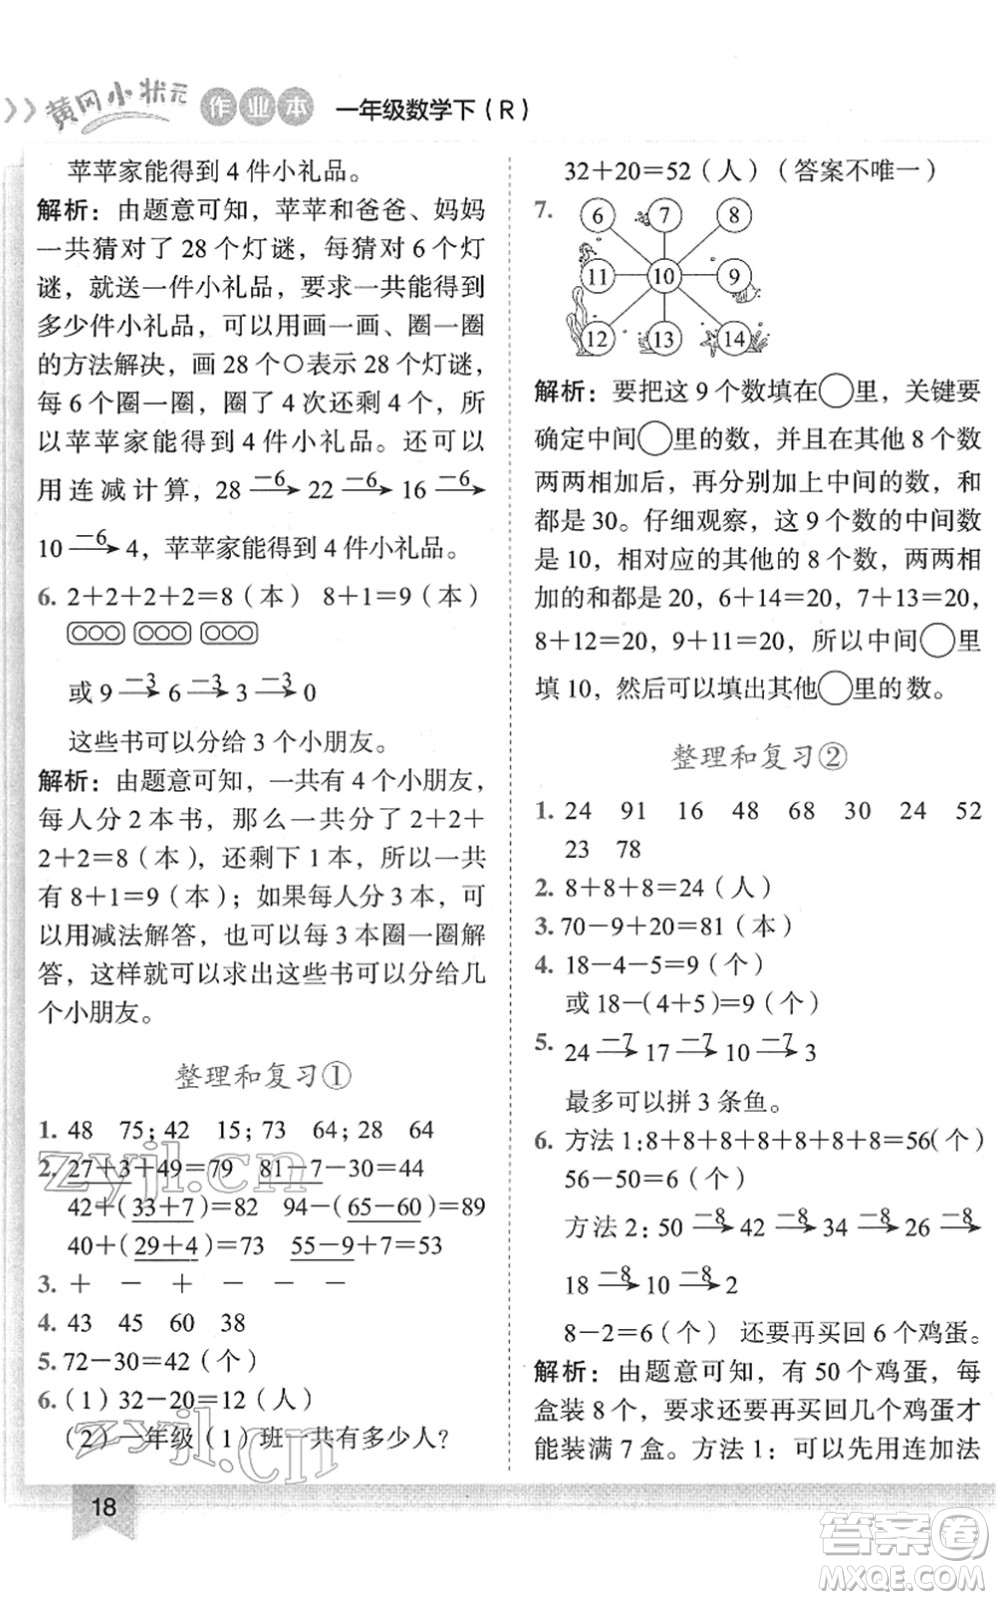 黄冈小状元 作业本 一年级数学下（R）
苹苹家能得到 4 件小礼品。
解析：由题意可知，苹苹和爸爸、妈妈
一共猜对了 28 个灯谜，每猜对 6 个灯
谜，就送一件小礼品，要求一共能得到
多少件小礼品，可以用画一画、圈一圈
的方法解决，画 28 个○表示 28 个灯谜，
每 6 个圈一圈，圈了 4 次还剩 4 个，所
以苹苹家能得到 4 件小礼品。还可以
用连减计算，28 —6→ 22 —6→ 16 —6→
10 —6→ 4，苹苹家能得到 4 件小礼品。
6. 2+2+2+2=8（本） 8+1=9（本）
○○○ ○○○ ○○○
或 9 —3→ 6 —3→ 3 —3→ 0
这些书可以分给 3 个小朋友。
解析：由题意可知，一共有 4 个小朋友，
每人分 2 本书，那么一共分了 2+2+
2+2=8（本），还剩下 1 本，所以一共
有 8+1=9（本）；如果每人分 3 本，可
以用减法解答，也可以每 3 本圈一圈解
答，这样就可以求出这些书可以分给几
个小朋友。
整理和复习①
1. 48 75；42 15；73 64；28 64
2. 27+3+49=79 81-7-30=44
42+(33+7)=82 94-(65-60)=89
40+(29+4)=73 55-9+7=53
3. + - + - - -
4. 43 45 60 38
5. 72-30=42（个）
6.（1）32-20=12（人）
（2）一年级（1）班一共有多少人？
18
32+20=52（人）（答案不唯一）
7.
6 7 8
11 10 9
12 13 14
解析：要把这 9 个数填在○里，关键要
确定中间○里的数，并且在其他 8 个数
两两相加后，再分别加上中间的数，和
都是 30。仔细观察，这 9 个数的中间数
是 10，相对应的其他的 8 个数，两两相
加的和都是 20，6+14=20，7+13=20，
8+12=20，9+11=20，所以中间○里
填 10，然后可以填出其他○里的数。
整理和复习②
1. 24 91 16 48 68 30 24 52
23 78
2. 8+8+8=24（人）
3. 70-9+20=81（本）
4. 18-4-5=9（个）
或 18-(4+5)=9（个）
5. 24 —7→ 17 —7→ 10 —7→ 3
最多可以拼 3 条鱼。
6. 方法 1：8+8+8+8+8+8+8=56（个）
56-50=6（个）
方法 2：50 —8→ 42 —8→ 34 —8→ 26 —8→
18 —8→ 10 —8→ 2
8-2=6（个） 还要再买回 6 个鸡蛋。
解析：由题意可知，有 50 个鸡蛋，每
盒装 8 个，要求还要再买回几个鸡蛋才
能装满 7 盒。方法 1：可以先用连加法
zyjl.cn
zyjl.cn
答案卷
MXQE.COM